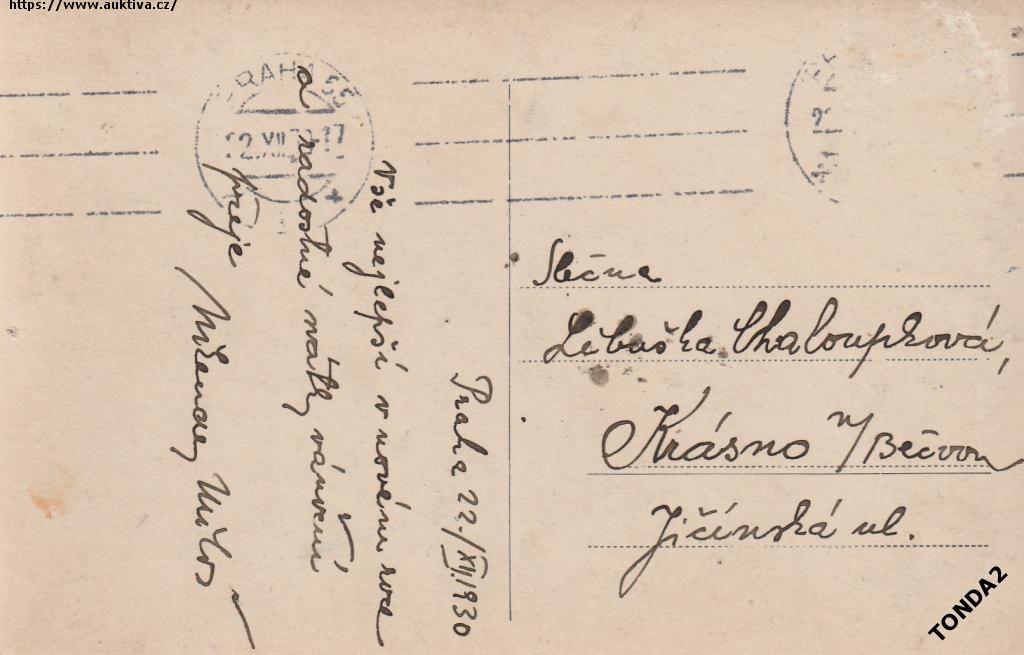 https://www.auktiva.cz/
PRAHA 55
22.XII. 17
Praha 22./XII.1930
Vše nejlepší v novém roce
a radostné svátky vánoční
přeje
Miloš
Slečna
Libuška Chaloupková,
Krásno n/Bečvou
Jičínská ul.
TONDA2